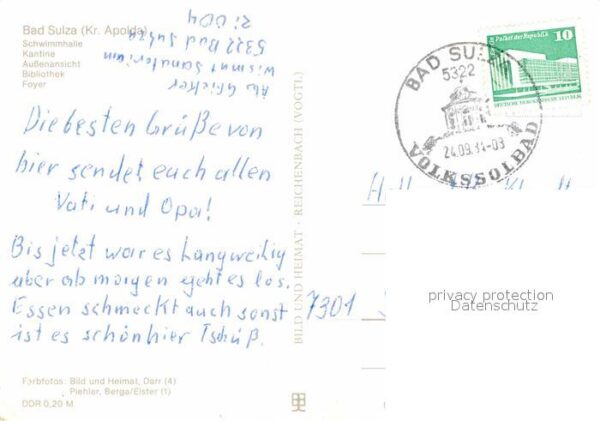 Bad Sulza (Kr. Apolda)
Schwimmhalle
Kantine
Außenansicht
Bibliothek
Foyer
Wismut Sanatorium
5322 Bad Sulza
Zi: 004
Die besten Grüße von
hier sendet euch allen
Vati und Opa!
Bis jetzt war es Langweilig
aber ab morgen geht es los.
Essen schmeckt auch sonst
ist es schön hier Tschüß.
Farbfotos: Bild und Heimat, Darr (4)
Piehler, Berga/Elster (1)
DDR 0,20 M
BILD UND HEIMAT · REICHENBACH (VOGTL)
Palast der Republik
10
DEUTSCHE DEMOKRATISCHE REPUBLIK
BAD SULZA
5322
24.09.84-08
VOLKSSOLBAD
7301
privacy protection
Datenschutz